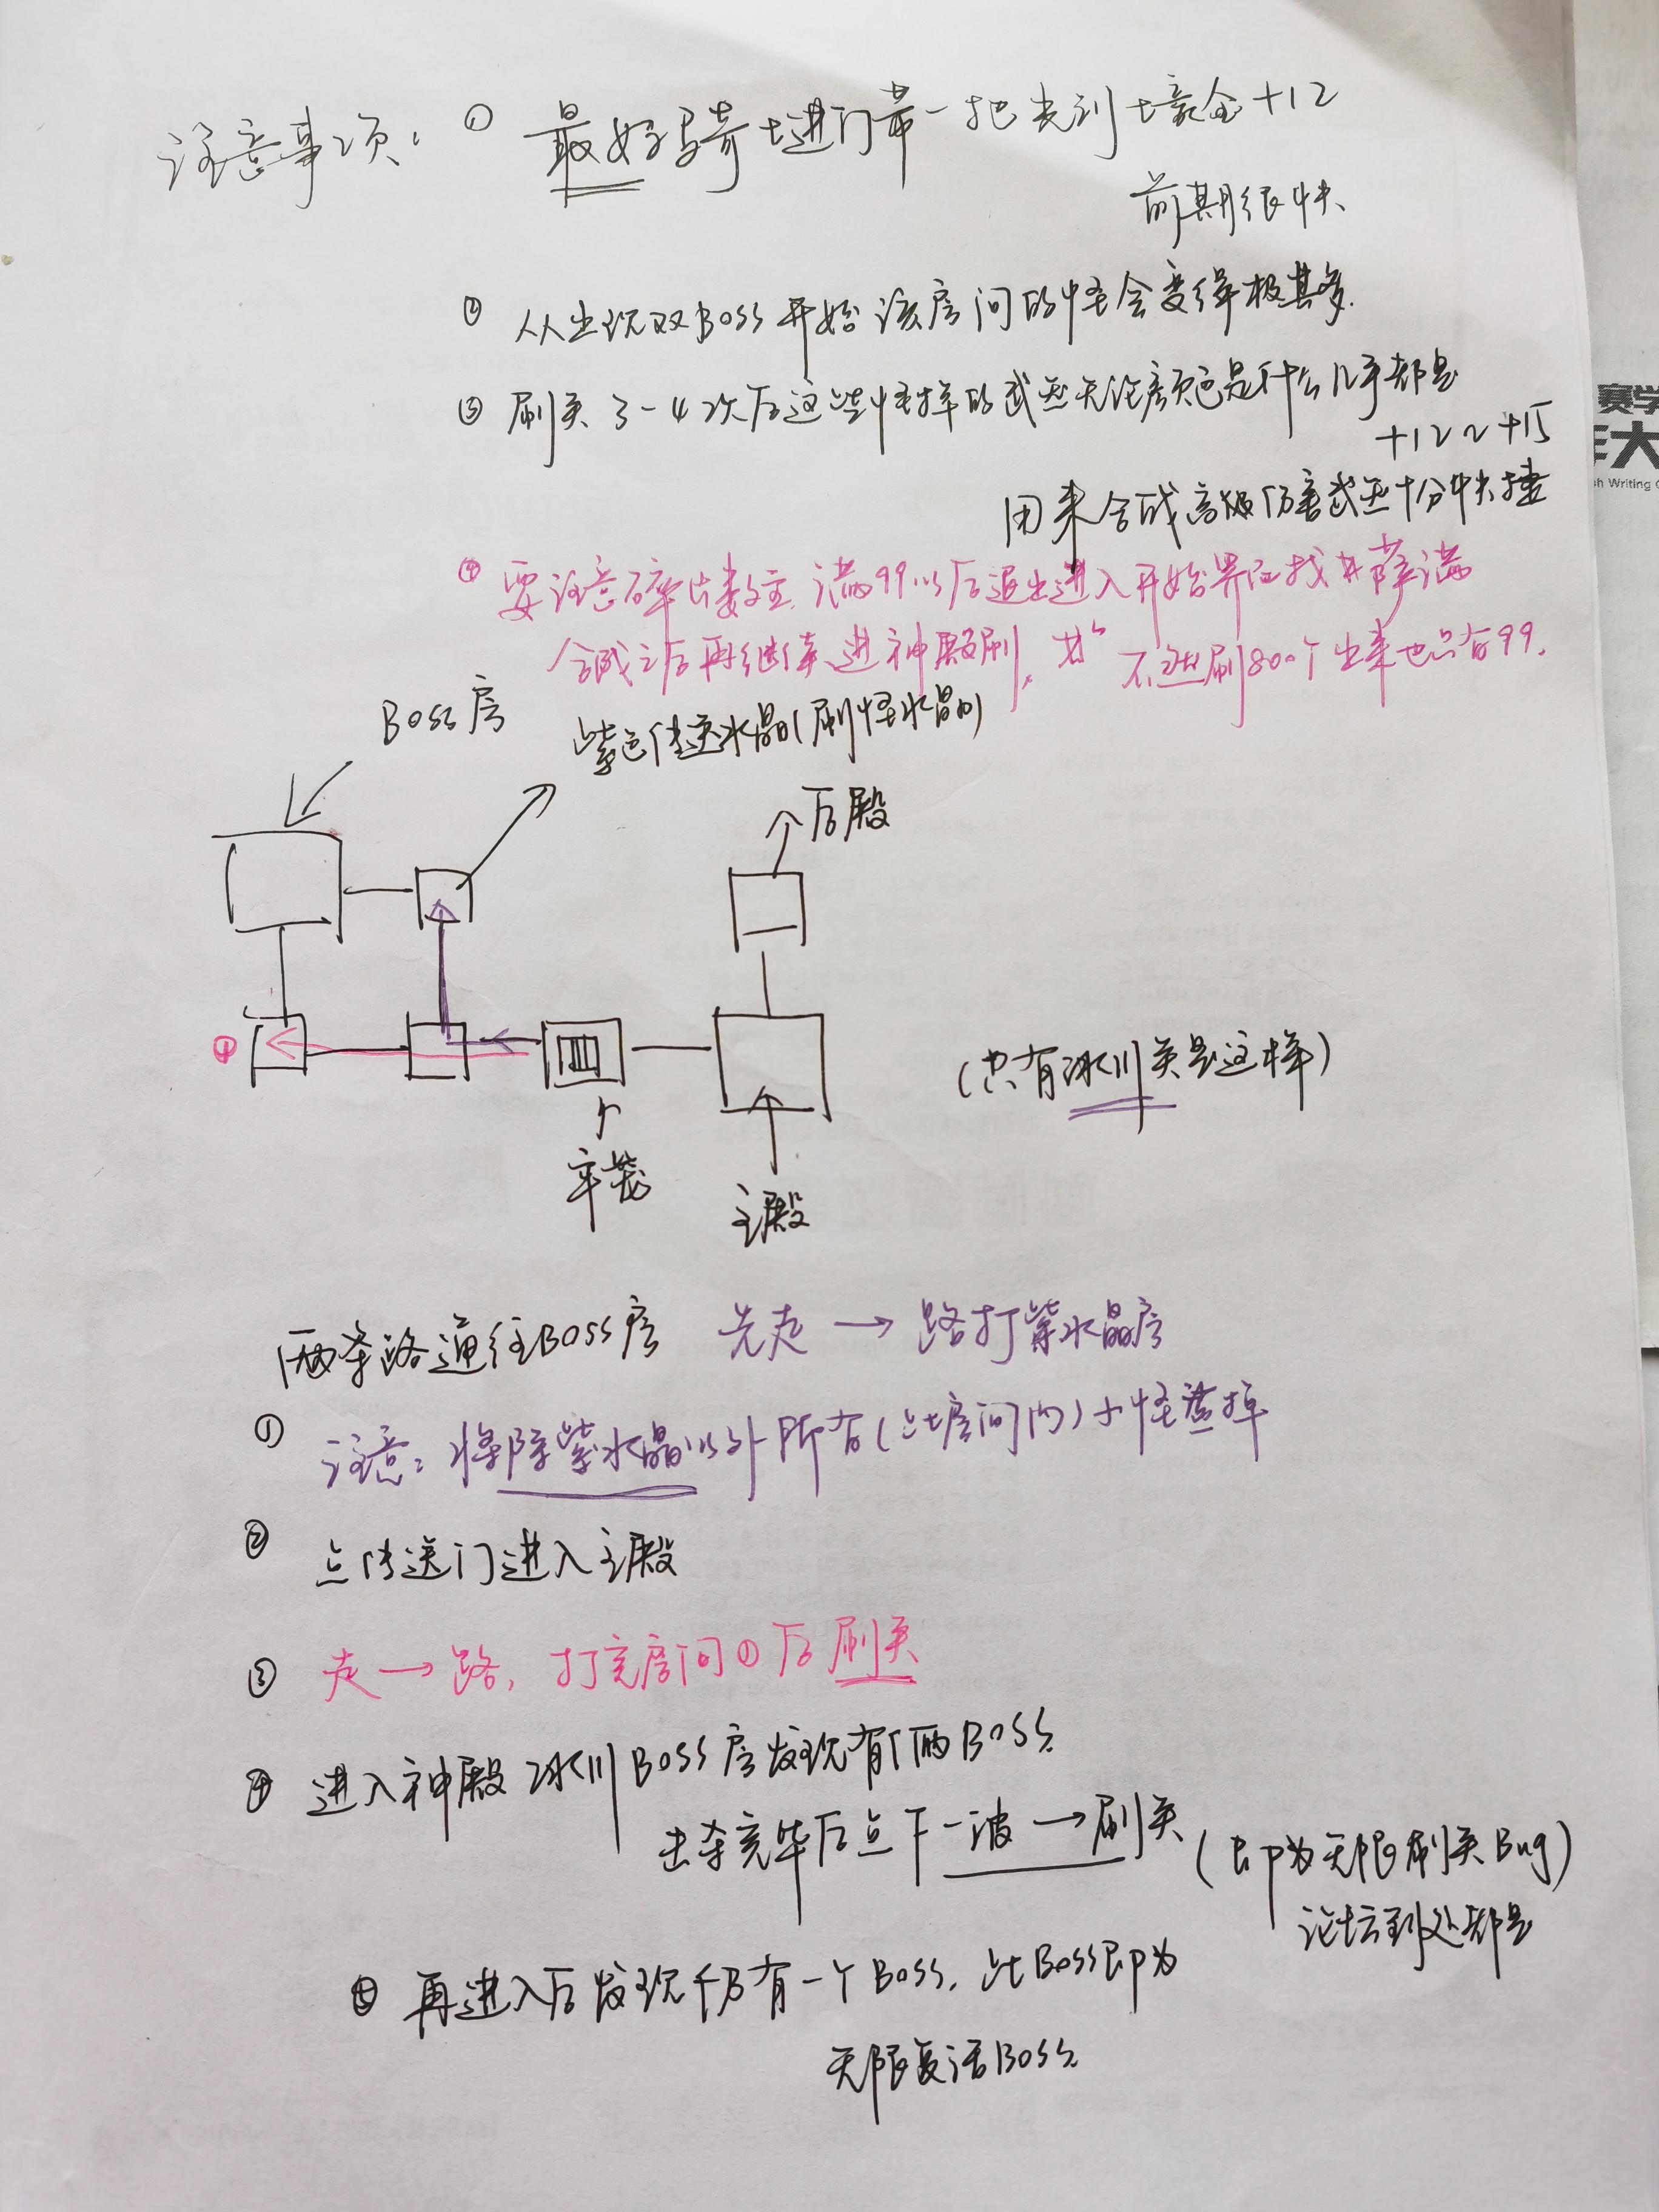 注意事项: ① 最好骑士进门带一把光剑土豪金+12
前期很快
② 从出现双Boss开始该房间的怪会变得极其多.
③ 刷关3-4次后这些怪掉的武器无论颜色是什么几乎都是
+12~+15
用来合成高级厉害武器十分快捷
④ 要注意碎片数量,满99以后退出进入开始界面找井薛满
合成之后再继续进神殿刷,
不然刷800个出来也只有99.
Boss房
紫色传送水晶(刷怪水晶)
后殿
①
(只有冰川关是这样)
牢笼
主殿
两条路通往BOSS房 先走 → 路打紫水晶房
① 注意: 将除紫水晶以外所有(此房间内)小怪渣掉
② 点传送门进入主殿
③ 走 → 路, 打完房间①后刷关
④ 进入神殿冰川BOSS房发现有俩BOSS
击杀完毕后点下一波 → 刷关 (即为无限刷关Bug)
论坛到处都是
⑤ 再进入后发现仍有一个BOSS, 此BOSS即为
无限复活BOSS
赛学
大
sh Writing